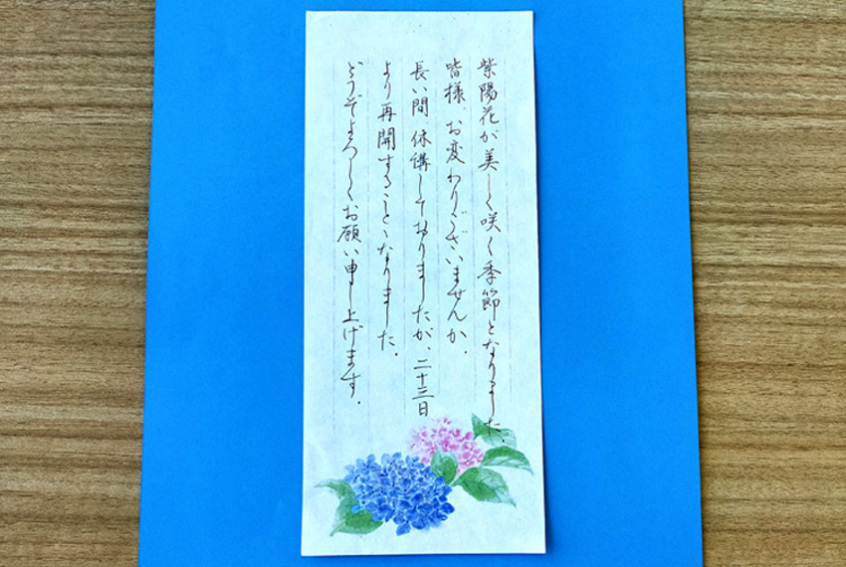 紫陽花が美しく咲く季節となりました。
皆様、お変わりございませんか。
長い間休講しておりましたが、二十三日
より再開することゝなりました。
どうぞよろしくお願い申し上げます。